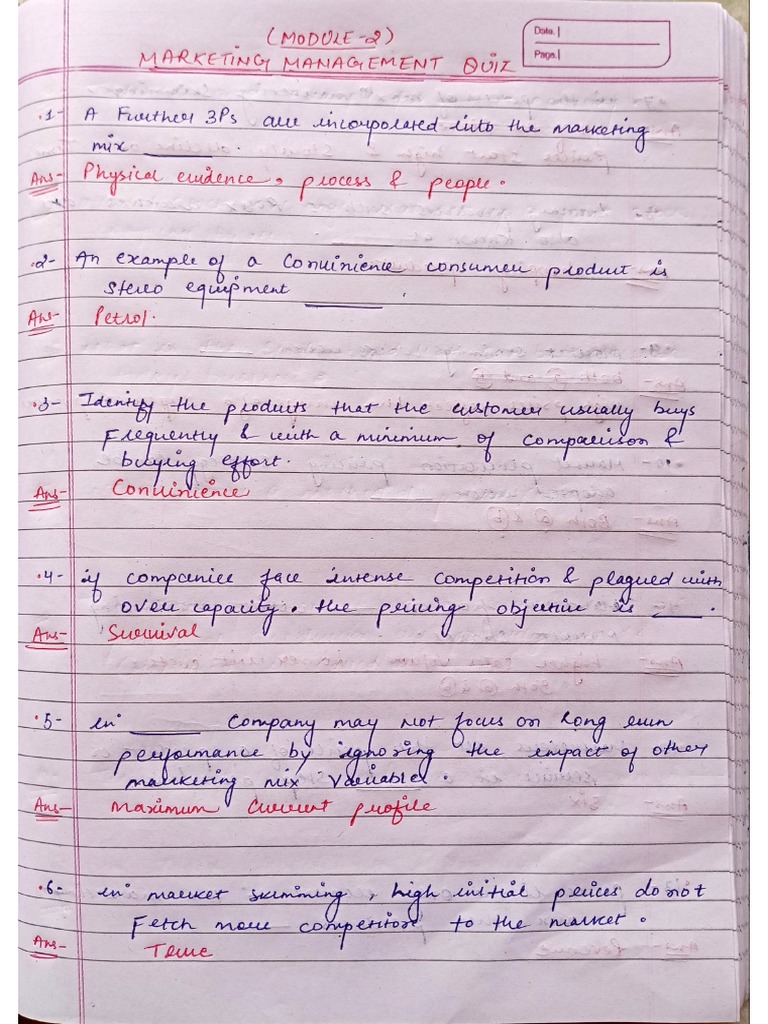 (MODULE-2)
MARKETING MANAGEMENT QUIZ
Date.
Page.
.1- A Further 3Ps are incorporated into the marketing
mix ______ .
Ans- Physical evidence, process & people.
.2- An example of a Convinience consumer product is
stereo equipment ______ .
Ans- Petrol.
.3- Identify the products that the customer usually buys
Frequently & with a minimum of comparison &
buying effort.
Ans- Convinience
.4- if companies face intense competition & plagued with
over capacity, the pricing objective is ____ .
Ans- Survival
.5- in ______ Company may not focus on long run
performance by ignoring the impact of other
marketing mix Variables .
Ans- Maximum Current profile
.6- in market skimming, high initial prices do not
Fetch more competitors to the market.
Ans- True